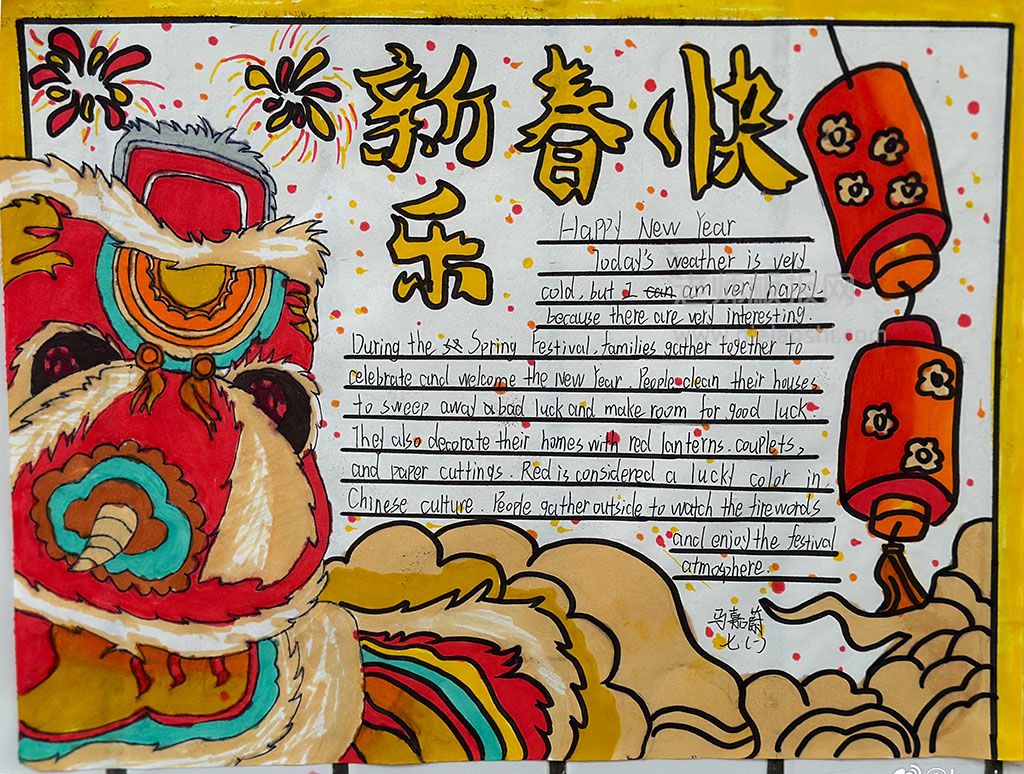 新春快
乐
Happy New Year
Today's weather is very
cold, but I can am very happy.
because there are very interesting.
During the Spring Festival, families gather together to
celebrate and welcome the New Year. People clean their houses
to sweep away a bad luck and make room for good luck.
They also decorate their homes with red lanterns. couplets,
and paper cuttings. Red is considered a lucky color in
Chinese culture. People gather outside to watch the firewords
and enjoy the festival
atmosphere.
马嘉蔚
七(一)